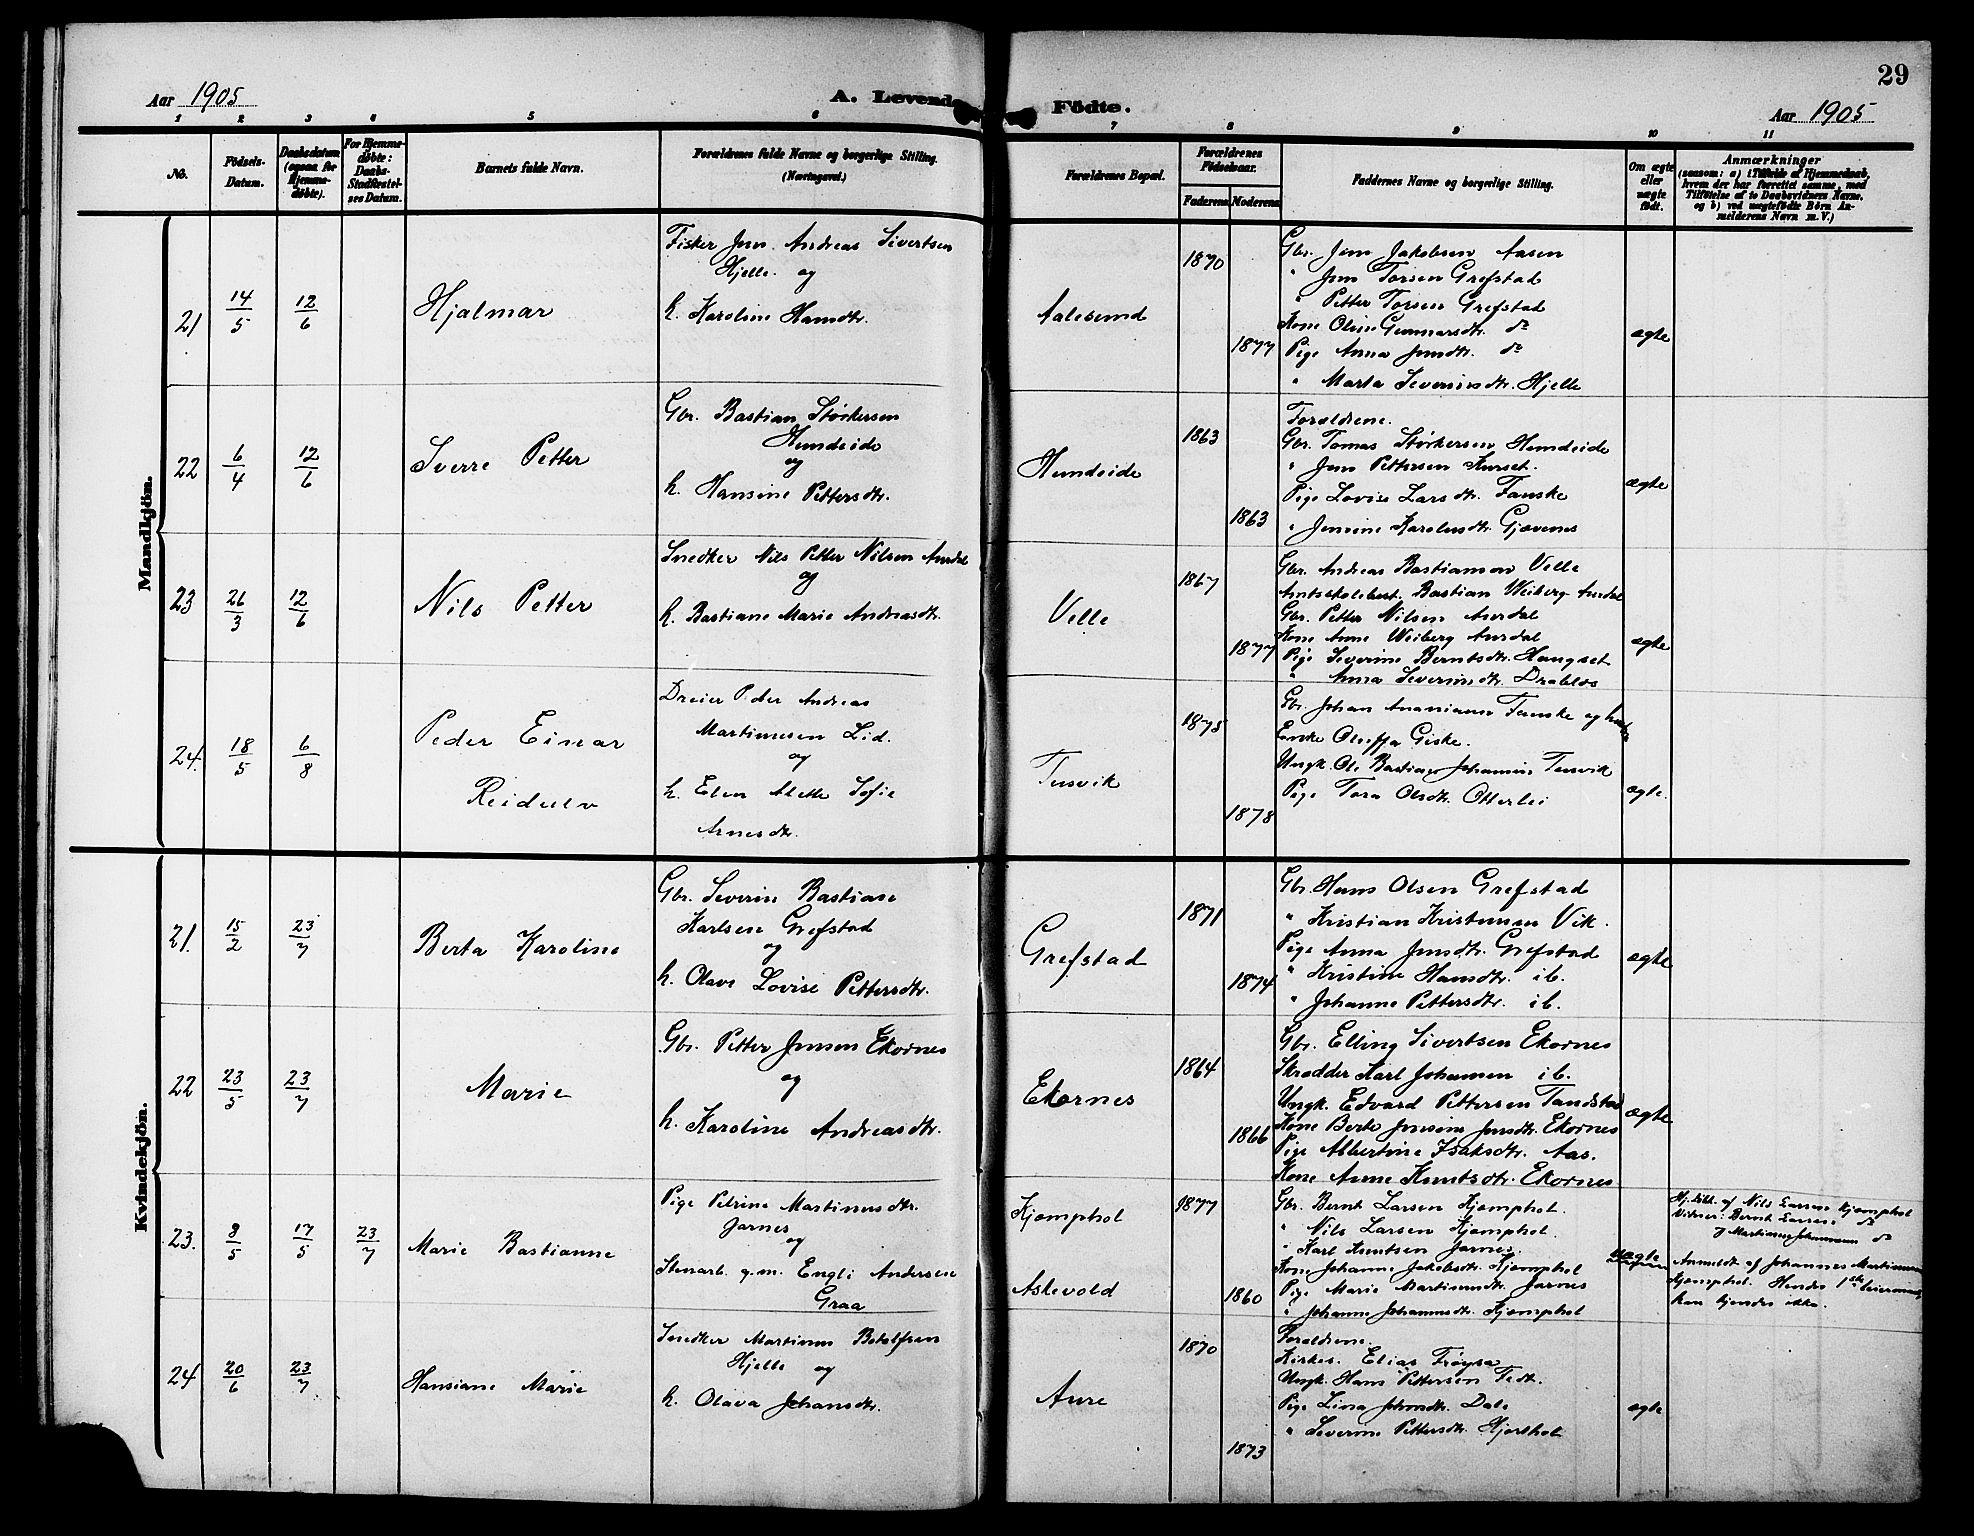 29
Aar 1905
A. Levende Födte.
Aar 1905
1 2 3 4 5 6 7 8 9 10 11
No.
Födsels-
Datum.
Daabsdatum
(ogsaa for
Hjemme-
døbte).
For Hjemme-
døbte:
Daabs-
Stadfæstel-
ses Datum.
Barnets fulde Navn.
Forældrenes fulde Navne og borgerlige Stilling.
(Næringsvei.)
Forældrenes Bopæl.
Forældrenes
Födselsaar.
Faderens
Moderens
Faddernes Navne og borgerlige Stilling.
Om ægte
eller
uægte
født.
Anmærkninger
(saasom: a) i Tilfælde af Hjemmedaab,
hvem der har forrettet samme, med
Tilföielse af to Daabsvidners Navne,
og b) ved uægtefödte Börn An-
melderens Navn m. V.)
Mandkjön.
21
14/5
12/6
Hjalmar
Fisker Jon Andreas Sivertsen
Hjelle og
h. Karoline Hansdtr.
Aalesund
1870
1877
Gbr. Jon Jakobsen Aasen
" Jon Torsen Grefstad
" Petter Torsen Grefstad
Kone Oline Gunnarsdtr. do
Pige Anna Jonsdtr. do
" Marta Severinsdtr. Hjelle
ægte
22
6/4
12/6
Sverre Petter
Gbr. Bastian Størkersen
Hundeide
og
h. Hansine Pettersdtr.
Hundeide
1863
1863
Forældrene.
Gbr. Tomas Størkersen Hundeide
" Jon Pettersen Kurset.
Pige Lovise Larsdtr. Fauske
" Jensine Karolusdtr. Gjævenes
ægte
23
26/3
12/6
Nils Petter
Snedker Nils Petter Nilsen Aurdal
og
h. Bastiane Marie Andreasdtr.
Velle
1867
1877
Gbr. Andreas Bastiansen Velle
Amtsskolebest. Bastian Weiberg Aurdal
Gbr. Petter Nilsen Aurdal
Kone Anne Weiberg Aurdal
Pige Severine Berntsdtr. Haugset
" Anna Severinsdtr. Drabløs
ægte
24.
18/5
6/8
Peder Einar
Reidulv
Dreier Peder Andreas
Martinusen Lid.
og
h. Elen Alette Sofie
Arnesdtr.
Tusvik
1875
1878
Gbr. Johan Ananiassen Fauske og hustru
Enke Oluffa Giske.
Ungk. Ole Bastian Johannes Tusvik
Pige Tora Olsdtr. Otterlei
ægte.
Kvindekjön.
21.
15/2
23/7
Berta Karoline
Gbr. Severin Bastian
Karlsen Grefstad
og
h. Olave Lovise Pettersdtr.
Grefstad
1871
1874
Gbr. Hans Olsen Grefstad
" Kristian Kristensen Vik.
Pige Anna Jonsdtr. Grefstad
" Kristine Hansdtr. ib.
" Johanne Pettersdtr. ib.
ægte
22
23/5
23/7
Marie
Gbr. Petter Jonsen Ekornes
og
h. Karoline Andreasdtr.
Ekornes
1864
1866
Gbr. Elling Sivertsen Ekornes
Skrædder Karl Johansen ib.
Ungk. Edvard Pettersen Tandstad
Kone Berte Jonsine Jonsdtr. Ekornes
Pige Albertine Isaksdtr. Aas.
Kone Anne Knutsdtr. Ekornes
ægte
23.
8/5
17/5
23/7
Marie Bastianne
Pige Petrine Martinusdtr.
Jarnes
og
Stenarb. g.m. Engli Andersen
Graa
Kjemphol
Askevold
1877
1860
Gbr. Bernt Larsen Kjemphol.
" Nils Larsen Kjemphol.
" Karl Knutsen Jarnes.
Kone Johanne Jakobsdtr. Kjemphol
Pige Marie Martinusdtr. Jarnes
" Johanne Johannesdtr. Kjemphol
uægte
Hj. döbt af Nils Larsen Kjemphol
Vidner: Bernt Larsen do
og Martinus Johannessen do
Anmeldt af Johannes Martinusen
Kjemphol. Hendes 1ste leiermaal,
han kjendes ikke.
24
20/6
23/7
Hansiane Marie
Snedker Martinus Botolfsen
Hjelle og
h. Olava Johansdtr.
Aure
1870
1873
Forældrene.
Kirkes. Elias Frøysa
Ungk. Hans Pettersen Tedt.
Pige Lina Johnsdtr. Dale
" Severine Pettersdtr. Hjorthol
ægte